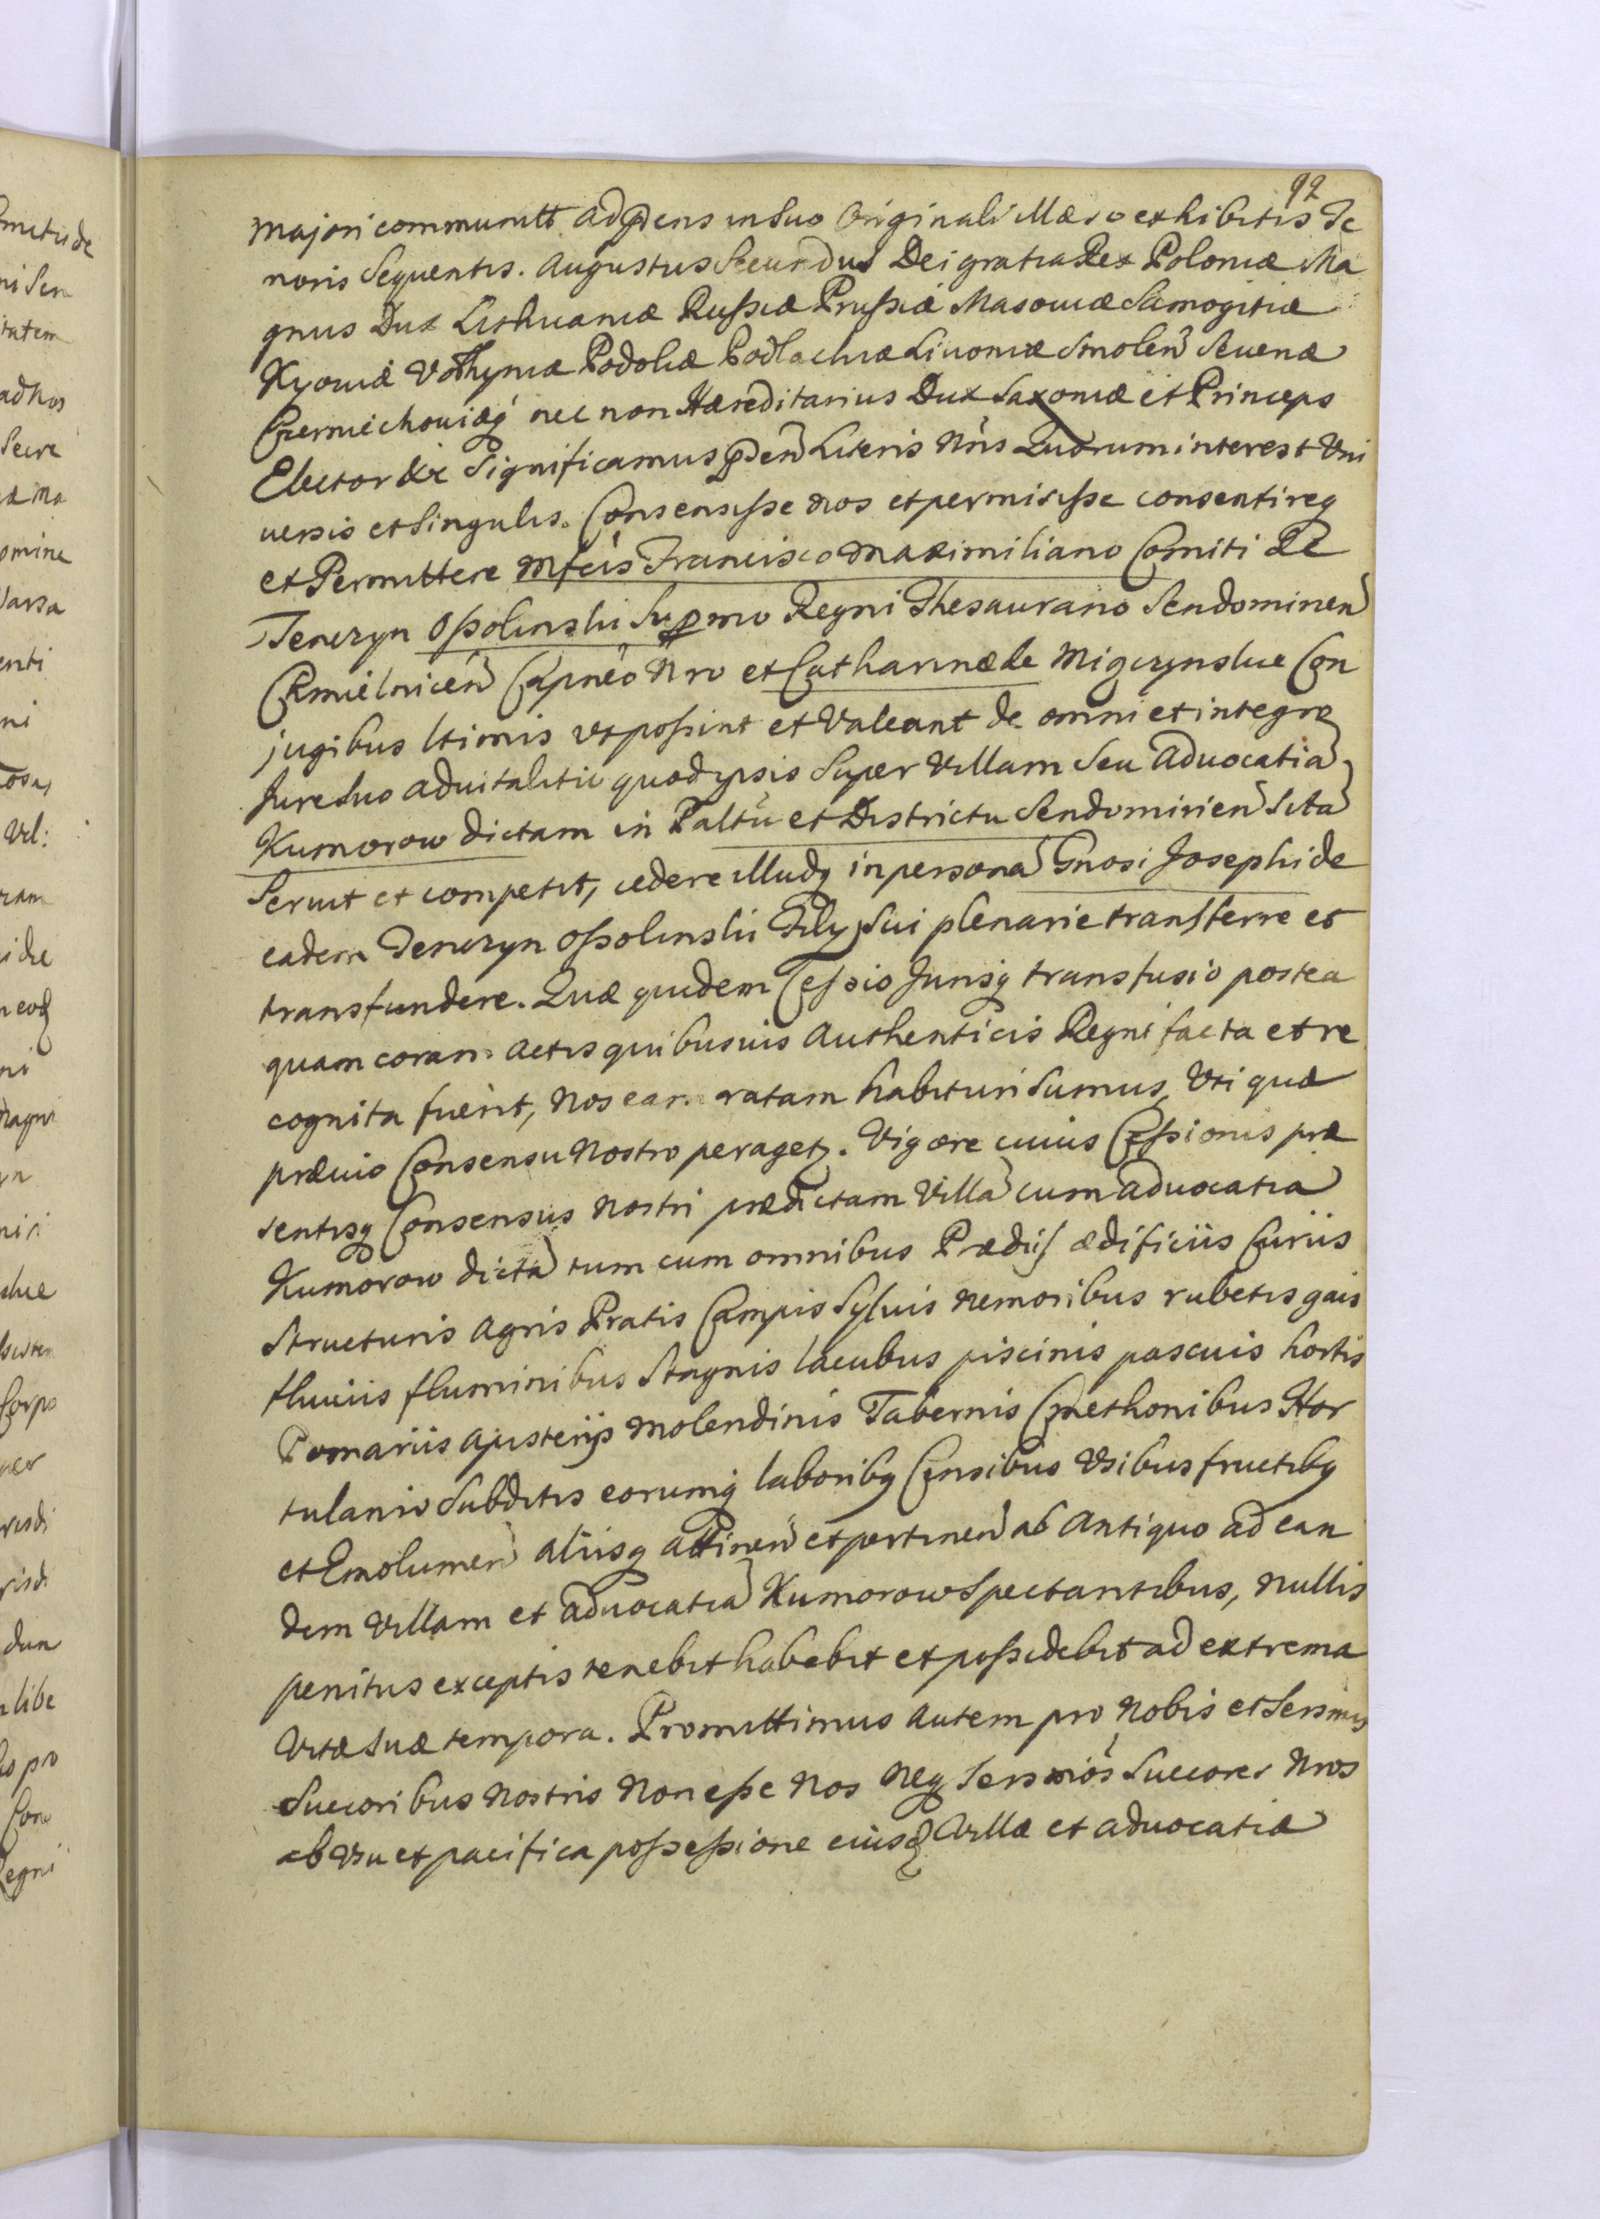 92
majori communitt. ad pñens in Suo Originali illæso exhibitis Te
noris Sequentis. Augustus Secundus Dei gratia Rex Poloniæ Ma
gnus Dux Lithuaniæ Russiæ Prussiæ Masouiæ Samogitiæ
Kyouiæ Volhyniæ Podoliæ Podlachiæ Liuoniæ Smoleñ Seueriæ
Czerniechouiæq nec non Hæreditarius Dux Saxoniæ et Princeps
Elector &c Significamus pñeñ Literis Nris Quorum interest Vni
uersis et Singulis. Consensisse nos et permisisse consentireq
et Permittere Mfcis Francisco Maximiliano Comiti de
Tenczyn Ossolinski Supmo Regni Thesaurario Sendomirień
Chmielniceń Capneo Nro et Catharinæ de Migczynskie Con
jugibus ltimis vt possint et Valeant de omni et integro
Jure Suo aduitalitio quod ipsis Super Villam Seu aduocatia
Kumorow dictam in Paltu et Districtu Sendomirień Sita
Seruit et competit, cedere illudq in persona Gnosi Josephi de
eadem Tenczyn Ossolinskii Filij Sui plenarie transferre et
transfundere. Quæ quidem Cessio Jurisq transfusio postea
quam coram Actis quibusuis Authenticis Regni facta et re
cognita fuerit, Nos eam ratam habituri Sumus, Vti quæ
præuio Consensu Nostro peraget. Vigore cuius Cessionis præ
sentisq Consensus Nostri prædictam Villa cum aduocatia
Kumorow dicta tum cum omnibus Prædiis ædificiis Curiis
Structuris Agris Pratis Campis Syluis Nemoribus rubetis gais
fluuiis fluminibus Stagnis lacubus piscinis pascuis hortis
Pomariis apisterijs Molendinis Tabernis Cmethonibus Hor
tulanis Subditis eorumq laboribq Censibus Vsibus fructibq
et Emolumeñ aliisq attineñ et pertineñ ab Antiquo ad ean
dem Villam et aduocatia Kumorow Spectantibus, nullis
penitus exceptis tenebit habebit et possidebit ad extrema
Vitæ Suæ tempora. Promittimus Autem pro Nobis et Sersmis
Succoribus Nostris Non esse Nos Neq Sersmos Succores Nros
ab Vsu et pacifica possessione eiusd Villæ et aduocatiæ